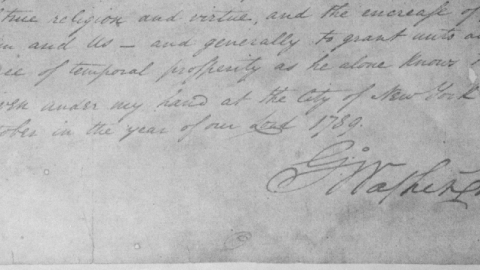 true religion and virtue, and the encrease of
and Us — and generally to grant unto
of temporal prosperity as he alone knows
ven under my hand at the City of New York
ober in the year of our Lord 1789.
Go: Washingt